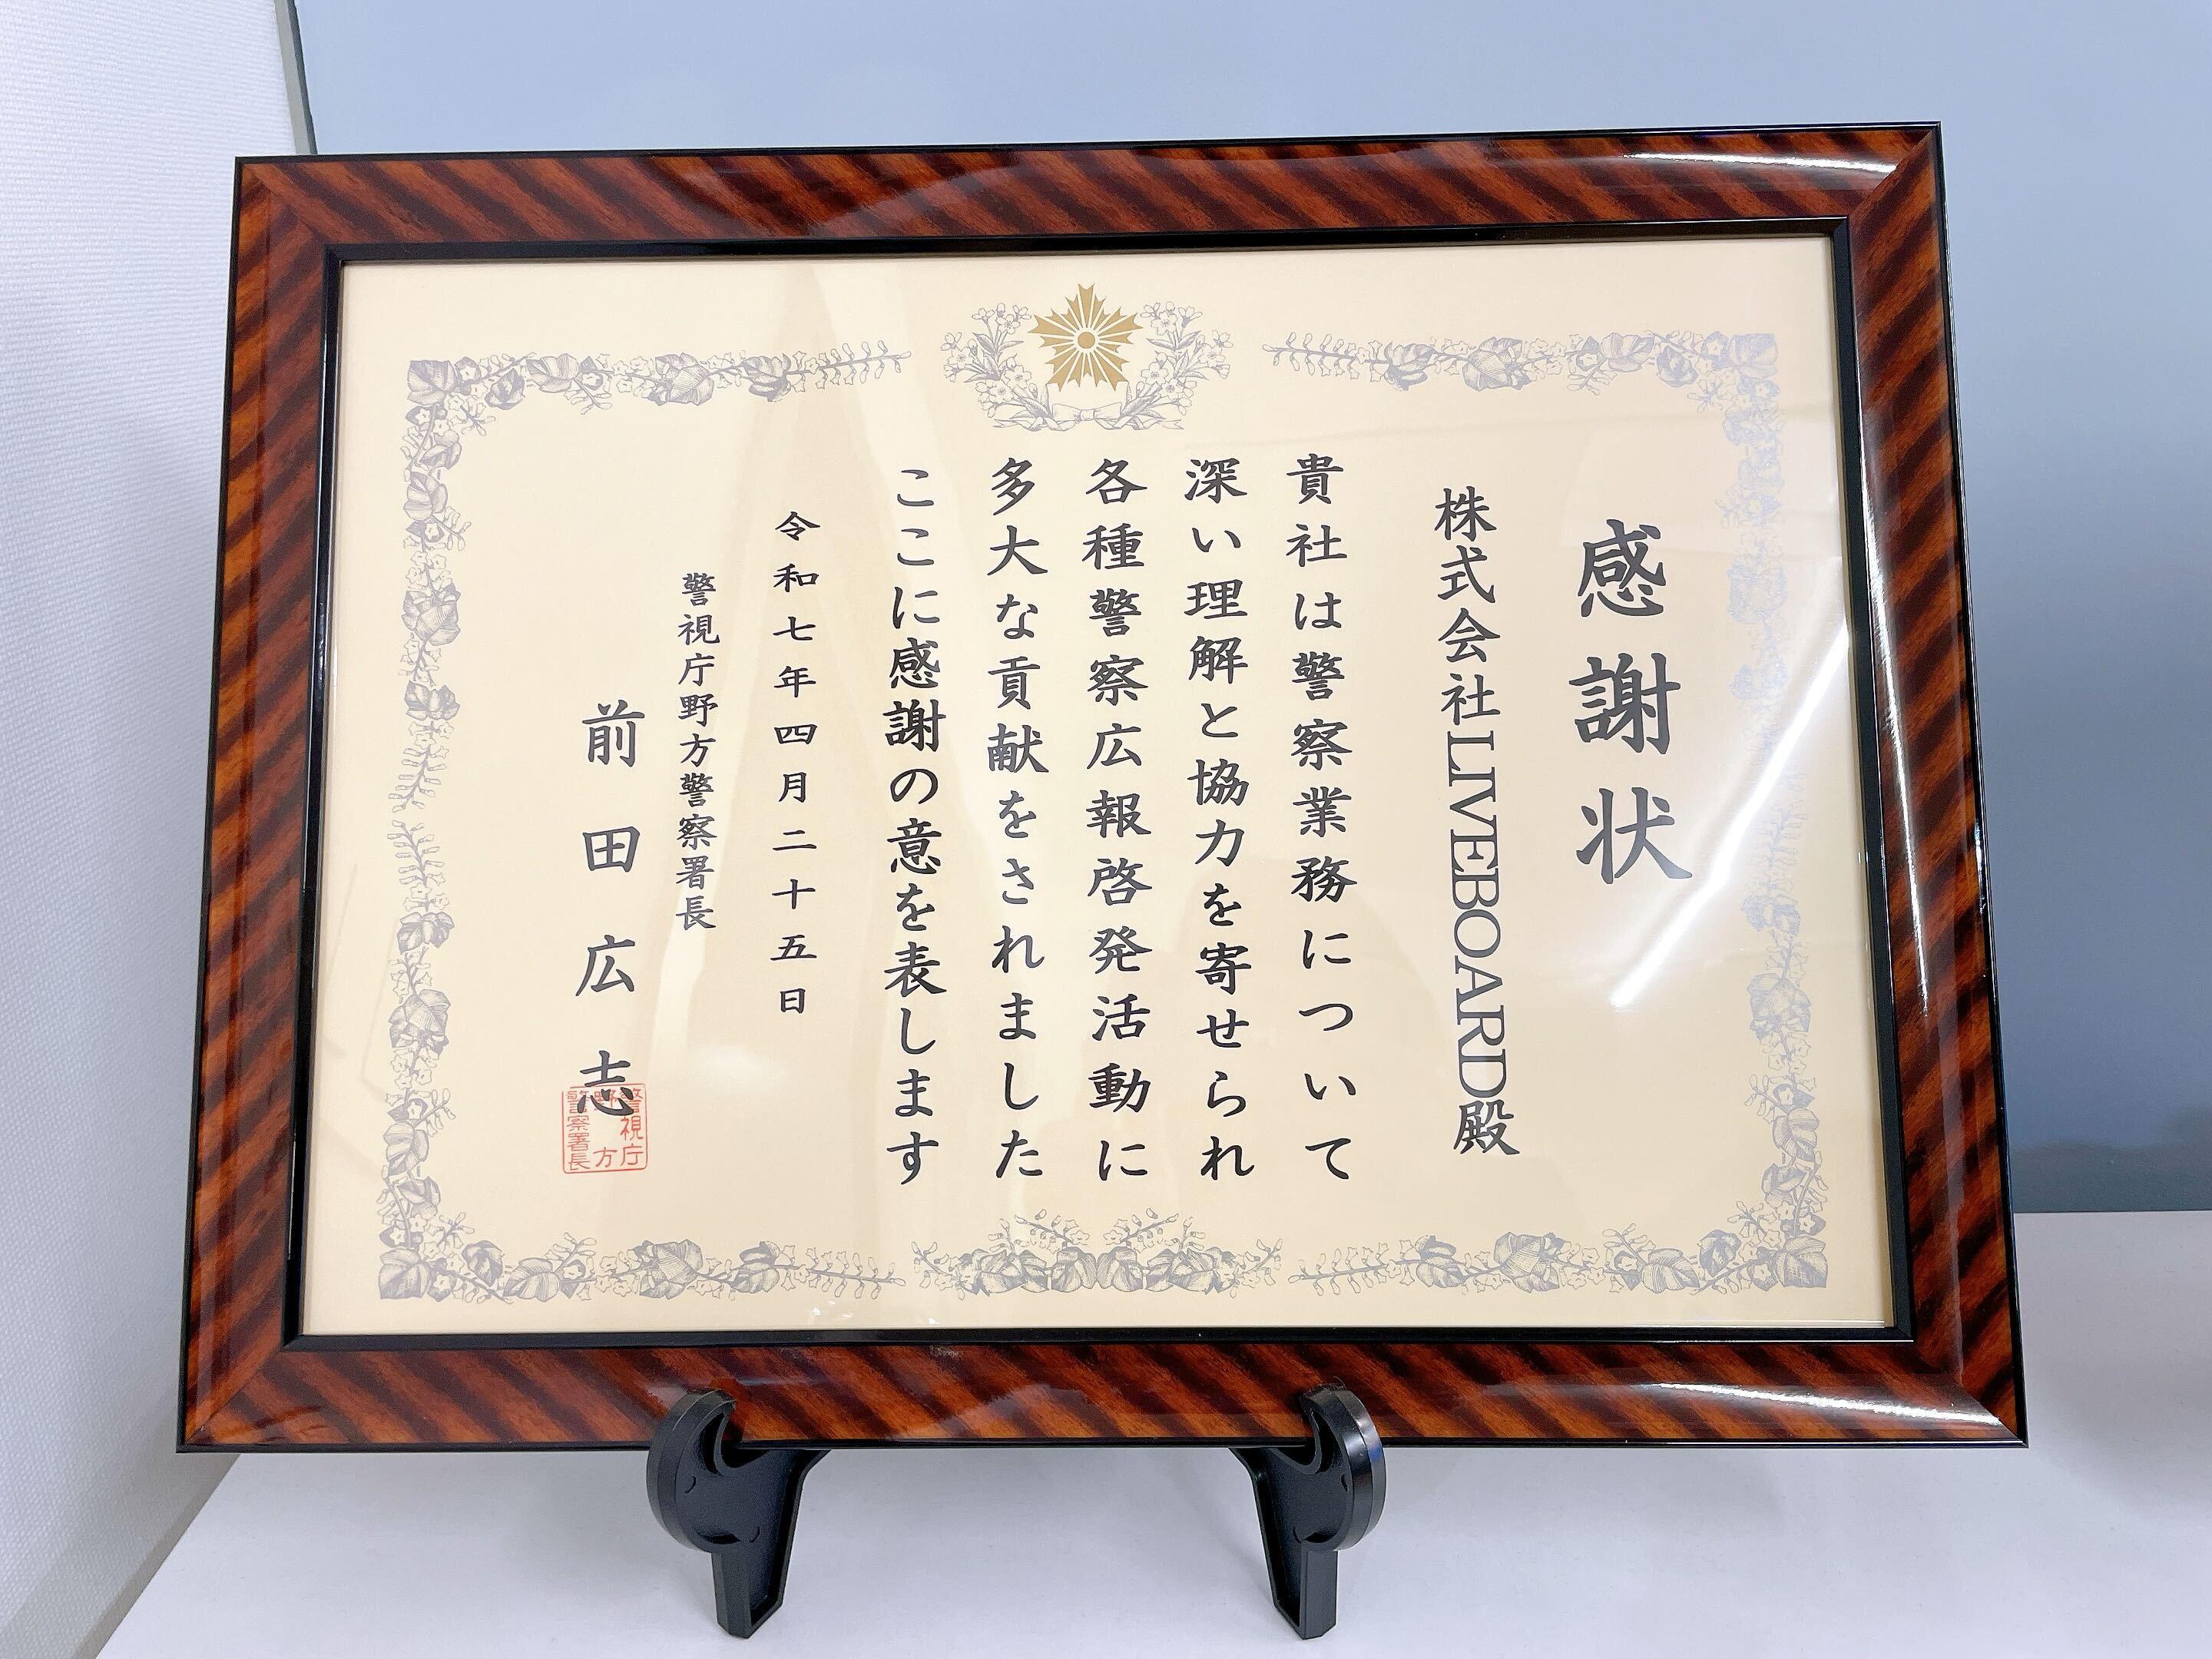 感謝状
株式会社LIVEBOARD殿
貴社は警察業務について
深い理解と協力を寄せられ
各種警察広報啓発活動に
多大な貢献をされました
ここに感謝の意を表します
令和七年四月二十五日
警視庁野方警察署長
前田広志
警視庁
野方
警察署長